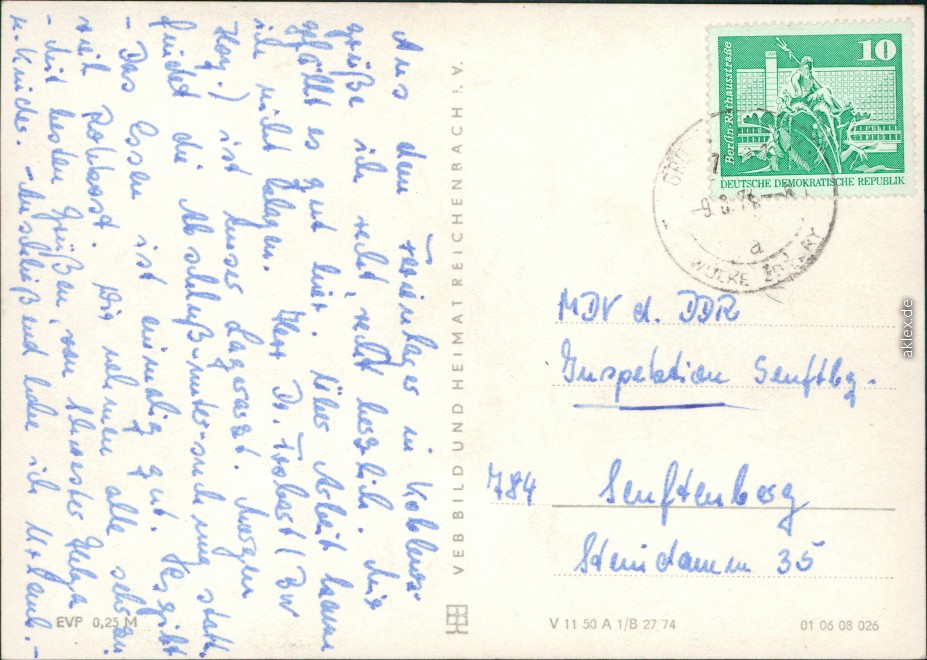 Aus dem Ferienlager in
grüße ich recht, recht herzlich. Mir
gefällt es gut hier. Über Arbeit kann
ich nicht klagen. Herr Dr. Trobast (Br
Hoy.) ist unser Lagerarzt. Morgen
findet die Abschlußuntersuchung statt.
- Das Essen ist einmalig gut. Es gibt
viel Rohkost. Wir nehmen alle schön zu
- Mit besten Grüßen, von Schwester Helga
u. Kinder. - Anschließend habe ich Urlaub. -
EVP 0,25 M
VEB BILD UND HEIMAT REICHENBACH I. V.
Berlin-Rathausstraße
10
DEUTSCHE DEMOKRATISCHE REPUBLIK
a
MDV d. DDR
Inspektion Senftbg.
784 Senftenberg
Steindamm 35
V 11 50 A 1/B 27/74
01 06 08 026
aklex.de